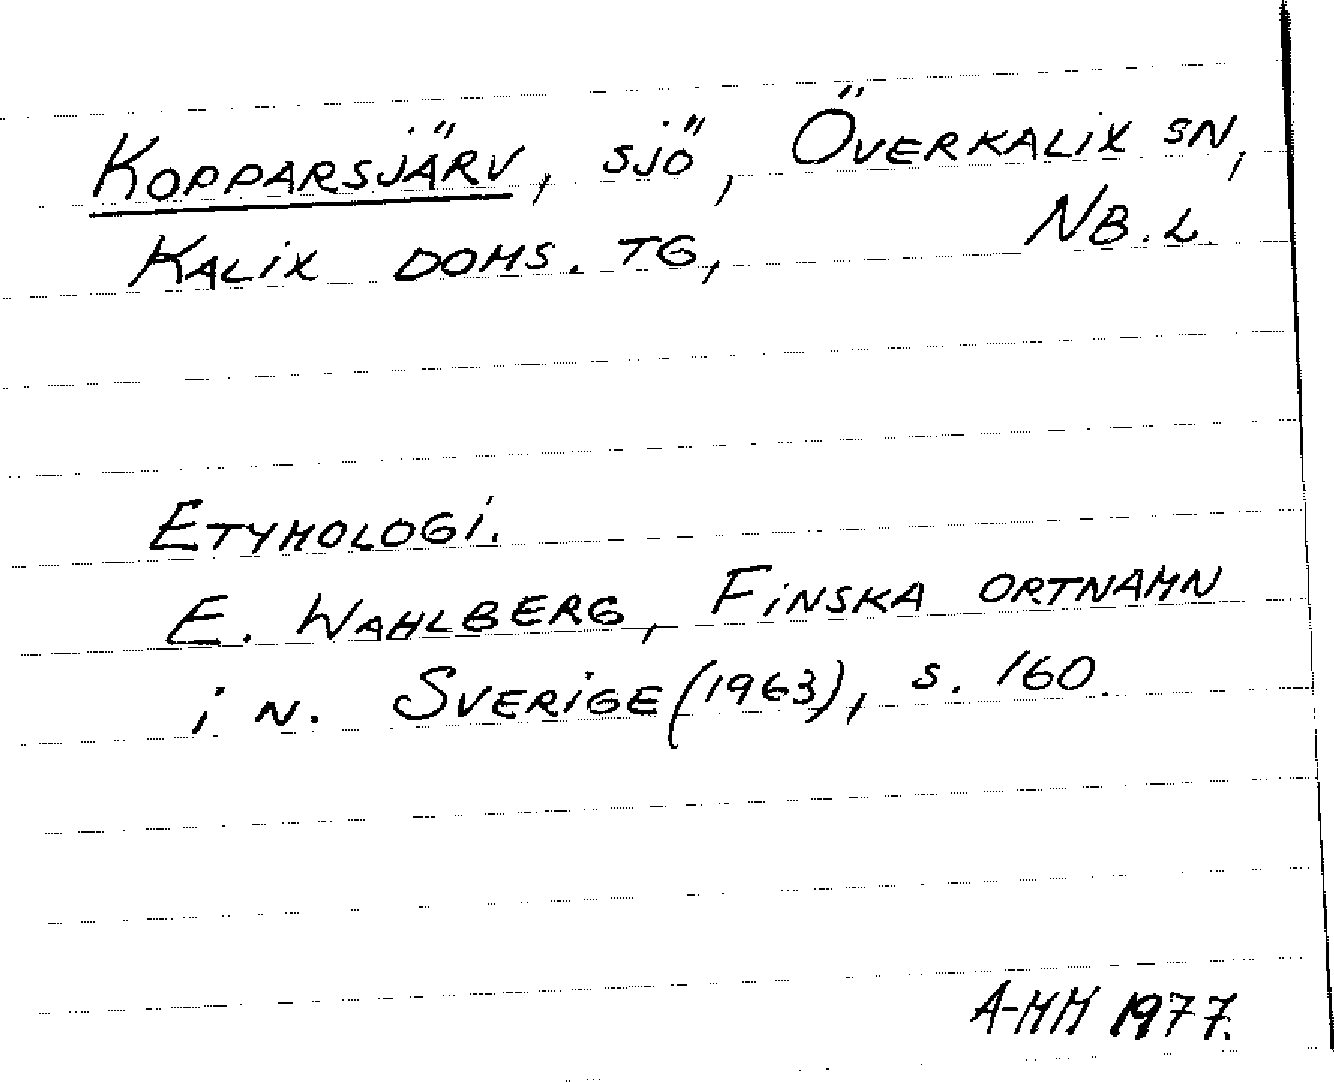 KOPPARSJÄRV, SJÖ, ÖVERKALIX SN,
KALIX DOMS. TG, NB. L.
ETYMOLOGI.
E. WAHLBERG, FINSKA ORTNAMN
i N. SVERIGE (1963), S. 160.
A-MM 1977.